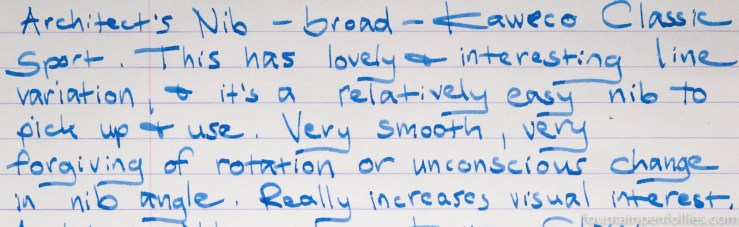 Architect's Nib - broad - Kaweco Classic
Sport. This has lovely & interesting line
variation, & it's a relatively easy nib to
pick up & use. Very smooth, very
forgiving of rotation or unconscious change
in nib angle. Really increases visual interest.
fountainpenfollies.com